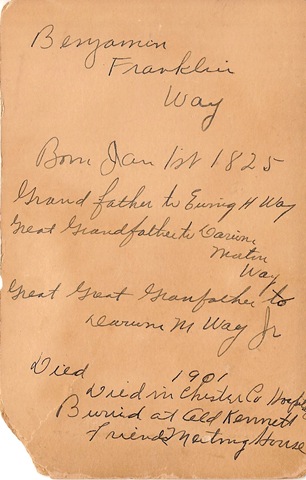 Benjamin
Franklin
Way
Born Jan 1st 1825
Grand father to Ewing H Way
Great Grandfather to
Way
Great Great Granfather to
M Way Jr
Died 1901
Died in Chester Co
Buried at Old Kennett
Friends Meeting House